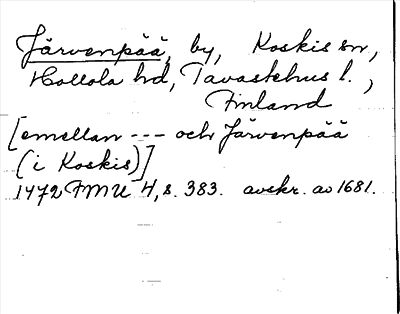 Järvenpää, by, Koskis sn,
Hollola hd, Tavastehus l.,
Finland
[emellan --- och Järvenpää
(i Koskis)]
1472 FMU 4, s. 383. avskr. av 1681.